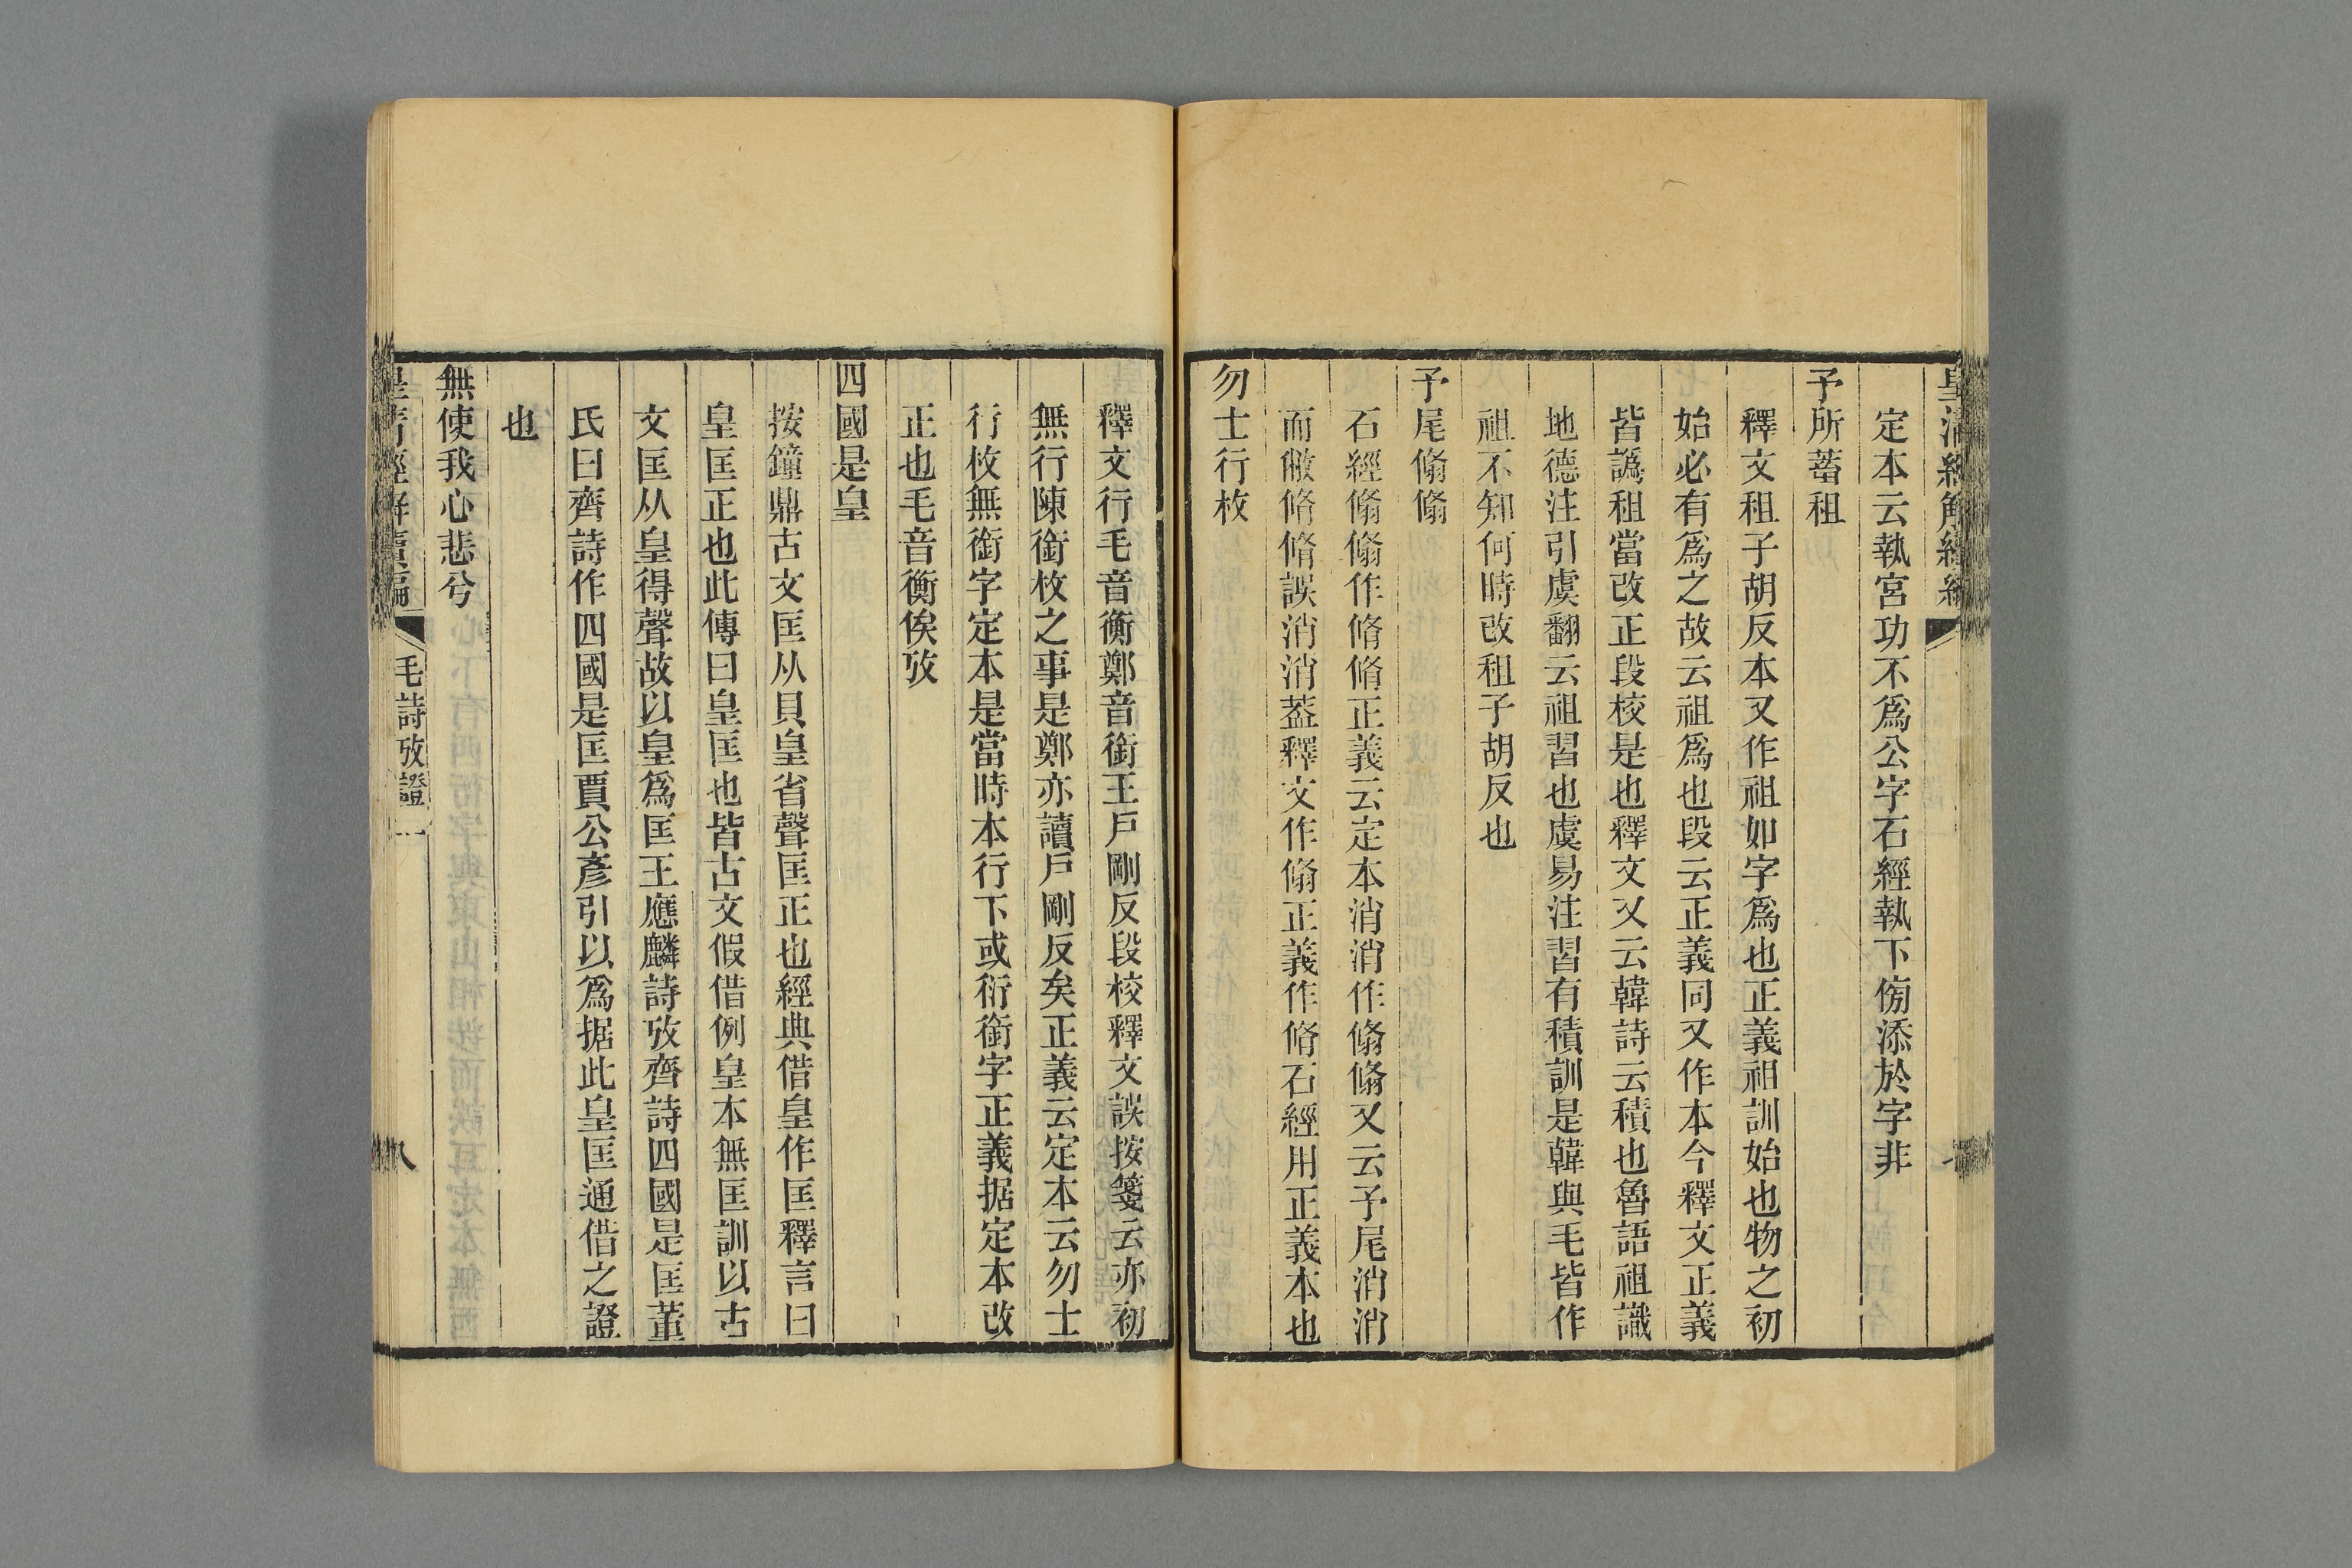 定本云執宮功不爲公字石經執下傍添於字非
予所蓄租
釋文租子胡反本又作祖如字爲也正義祖訓始也物之初
始必有爲之故云祖爲也段云正義同又作本今釋文正義
皆譌租當改正段校是也釋文又云韓詩云積也魯語祖識
地德注引虞翻云祖習也虞易注習有積訓是韓與毛皆作
祖不知何時改租子胡反也
予尾翛翛
石經翛翛作脩脩正義云定本消消作翛翛又云予尾消消
而敝脩脩誤消消蓋釋文作翛正義作脩石經用正義本也
勿士行枚
釋文行毛音衡鄭音銜王戸剛反段校釋文誤按箋云亦初
無行陳銜枚之事是鄭亦讀戸剛反矣正義云定本云勿士
行枚無銜字定本是當時本行下或衍銜字正義据定本改
正也毛音衡俟攷
四國是皇
按鐘鼎古文匡从貝皇省聲匡正也經典借皇作匡釋言曰
皇匡正也此傳曰皇匡也皆古文假借例皇本無匡訓以古
文匡从皇得聲故以皇爲匡王應麟詩攷齊詩四國是匡董
氏曰齊詩作四國是匡賈公彥引以爲据此皇匡通借之證
也
無使我心悲兮
毛詩攷證一
八